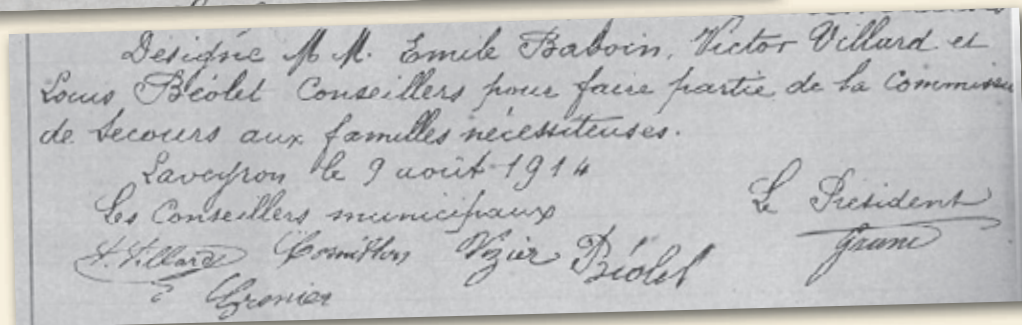 Désigne M M. Emile Baboin, Victor Villard et
Louis Béolet Conseillers pour faire partie de la Commission
de secours aux familles nécessiteuses.
Laveyron le 9 août 1914
Les Conseillers municipaux
Le Président
V. Villard Cornillon Vizier Béolet
Gronier